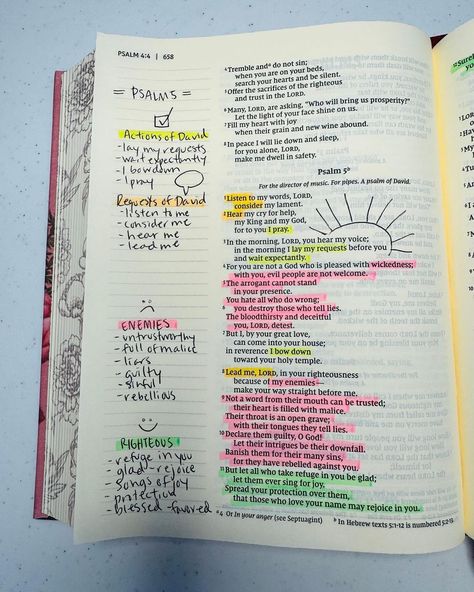 PSALM 4:4 | 658
= PSALM 5 =
Actions of David
- lay my requests
- wait expectantly
- I bow down
- I pray
Requests of David
- listen to me
- consider me
- hear me
- lead me
ENEMIES
- untrustworthy
- full of malice
- liars
- guilty
- sinful
- rebellious
RIGHTEOUS
- refuge in you
- glad - rejoice
- songs of joy
- protection
- blessed - favored
4 Tremble and a do not sin;
when you are on your beds,
search your hearts and be silent.
5 Offer the sacrifices of the righteous
and trust in the LORD.
6 Many, LORD, are asking, "Who will bring us prosperity?"
Let the light of your face shine on us.
7 Fill my heart with joy
when their grain and new wine abound.
8 In peace I will lie down and sleep,
for you alone, LORD,
make me dwell in safety.
Psalm 5 b
For the director of music. For pipes. A psalm of David.
1 Listen to my words, LORD,
consider my lament.
2 Hear my cry for help,
my King and my God,
for to you I pray.
3 In the morning, LORD, you hear my voice;
in the morning I lay my requests before you
and wait expectantly.
4 For you are not a God who is pleased with wickedness;
with you, evil people are not welcome.
5 The arrogant cannot stand
in your presence.
You hate all who do wrong;
6 you destroy those who tell lies.
The bloodthirsty and deceitful
you, LORD, detest.
7 But I, by your great love,
can come into your house;
in reverence I bow down
toward your holy temple.
8 Lead me, LORD, in your righteousness
because of my enemies—
make your way straight before me.
9 Not a word from their mouth can be trusted;
their heart is filled with malice.
Their throat is an open grave;
with their tongues they tell lies.
10 Declare them guilty, O God!
Let their intrigues be their downfall.
Banish them for their many sins,
for they have rebelled against you.
11 But let all who take refuge in you be glad;
let them ever sing for joy.
Spread your protection over them,
that those who love your name may rejoice in you.
a 4 Or In your anger (see Septuagint)
b In Hebrew texts 5:1-12 is numbered 5:2-13.